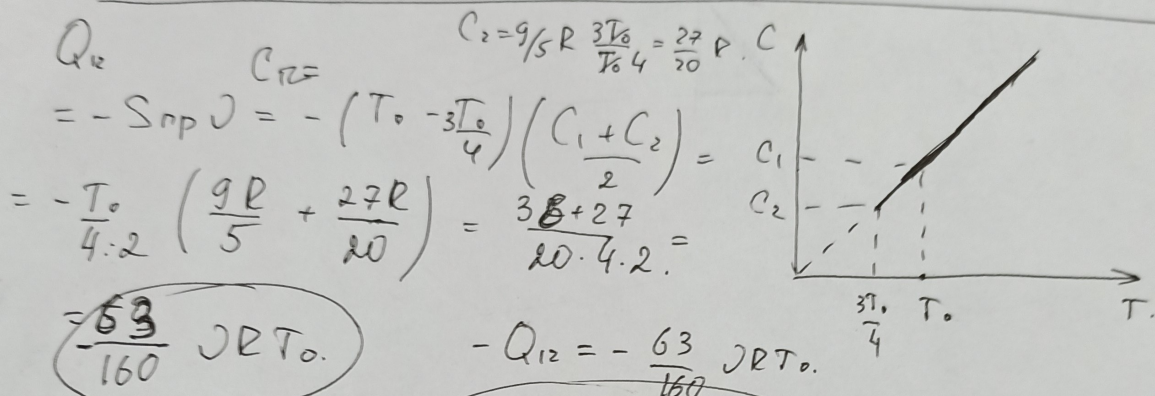 C₂ = 9/5 R 3T₀/T₀4 = 27/20 R.
Q₁₂ C₁₂ =
= - Sпр ν = - (T₀ - 3T₀/4) (C₁ + C₂/2) =
= - T₀/4·2 (9R/5 + 27R/20) = 36+27/20·4·2. =
= - 63/160 νRT₀.
- Q₁₂ = - 63/160 νRT₀.
C
C₁
C₂
3T₀/4 T₀ T.